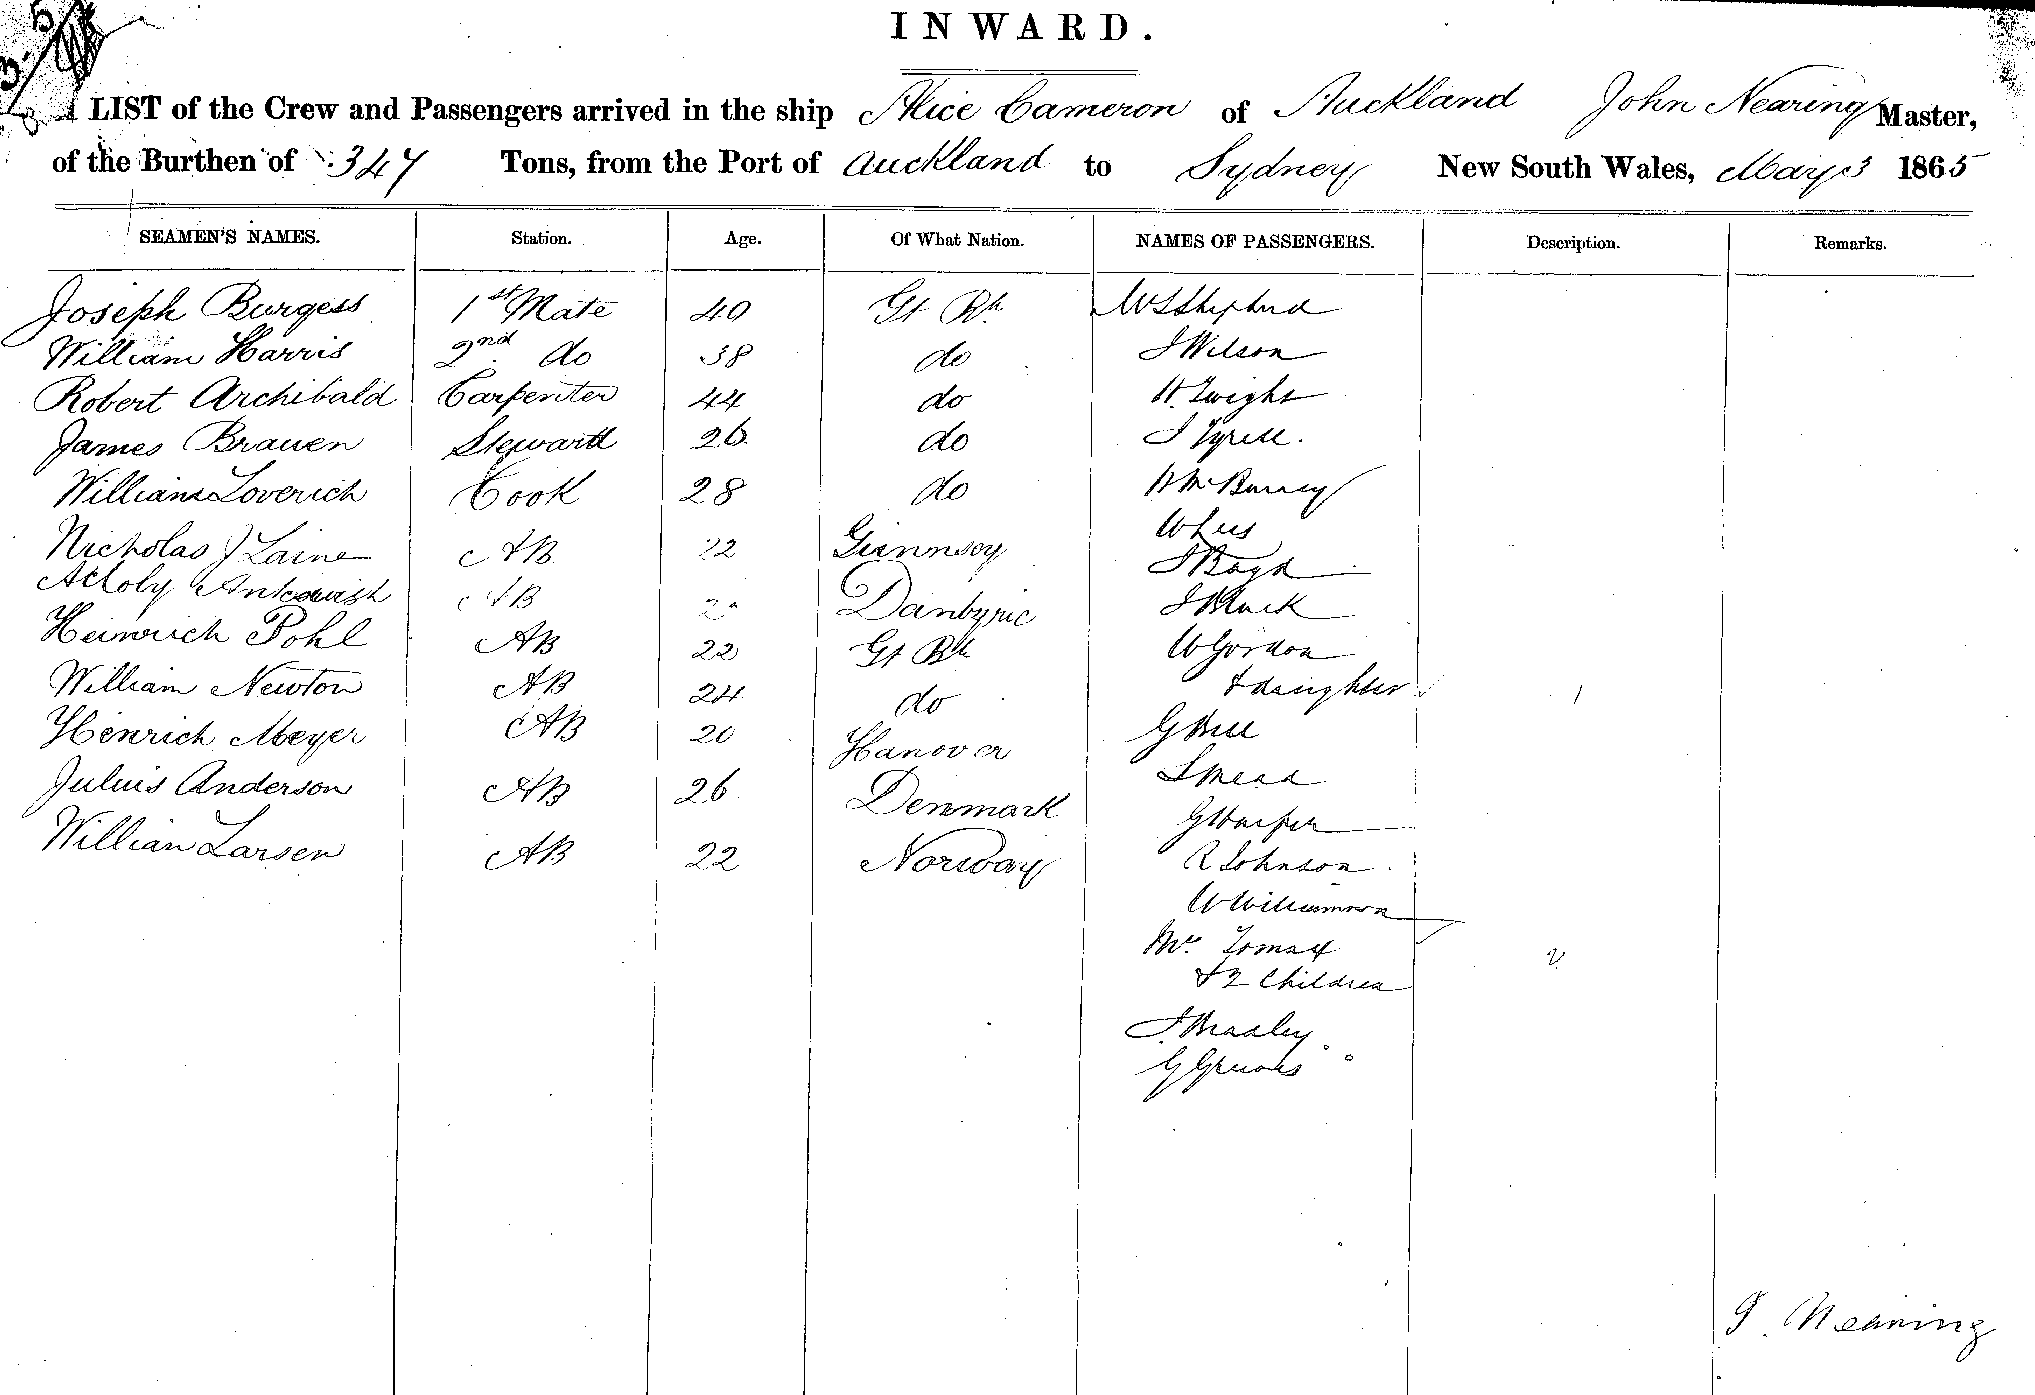 INWARD.
LIST of the Crew and Passengers arrived in the ship Alice Cameron of Auckland John Nearing Master,
of the Burthen of 347 Tons, from the Port of Auckland to Sydney New South Wales, May 3 1865
SEAMEN'S NAMES. Station. Age. Of What Nation. NAMES OF PASSENGERS. Description. Remarks.
Joseph Burgess 1st Mate 40 Gt Bn W S Shepherd
William Harris 2nd do 38 do J Wilson
Robert Archibald Carpenter 44 do H. Twight
James Brauen Steward 26 do J Tyrell.
William Loverich Cook 28 do Mc Burney
Nicholas J Laine AB 22 Giernsey W Lees
AB J Boyd
Heinrich Pohl AB 22 Gt Bn J Black
William Newton AB 24 do W Gordon
& daughter 1
Henrich Meyer AB 20 Hanover G Bell
Julius Anderson AB 26 Denmark S Mead
G Harper
William Larsen AB 22 Norway R Johnson
W Williamson
Mrs Tomax
& 2 Children 2
J. Bradley
G
J. Nearing